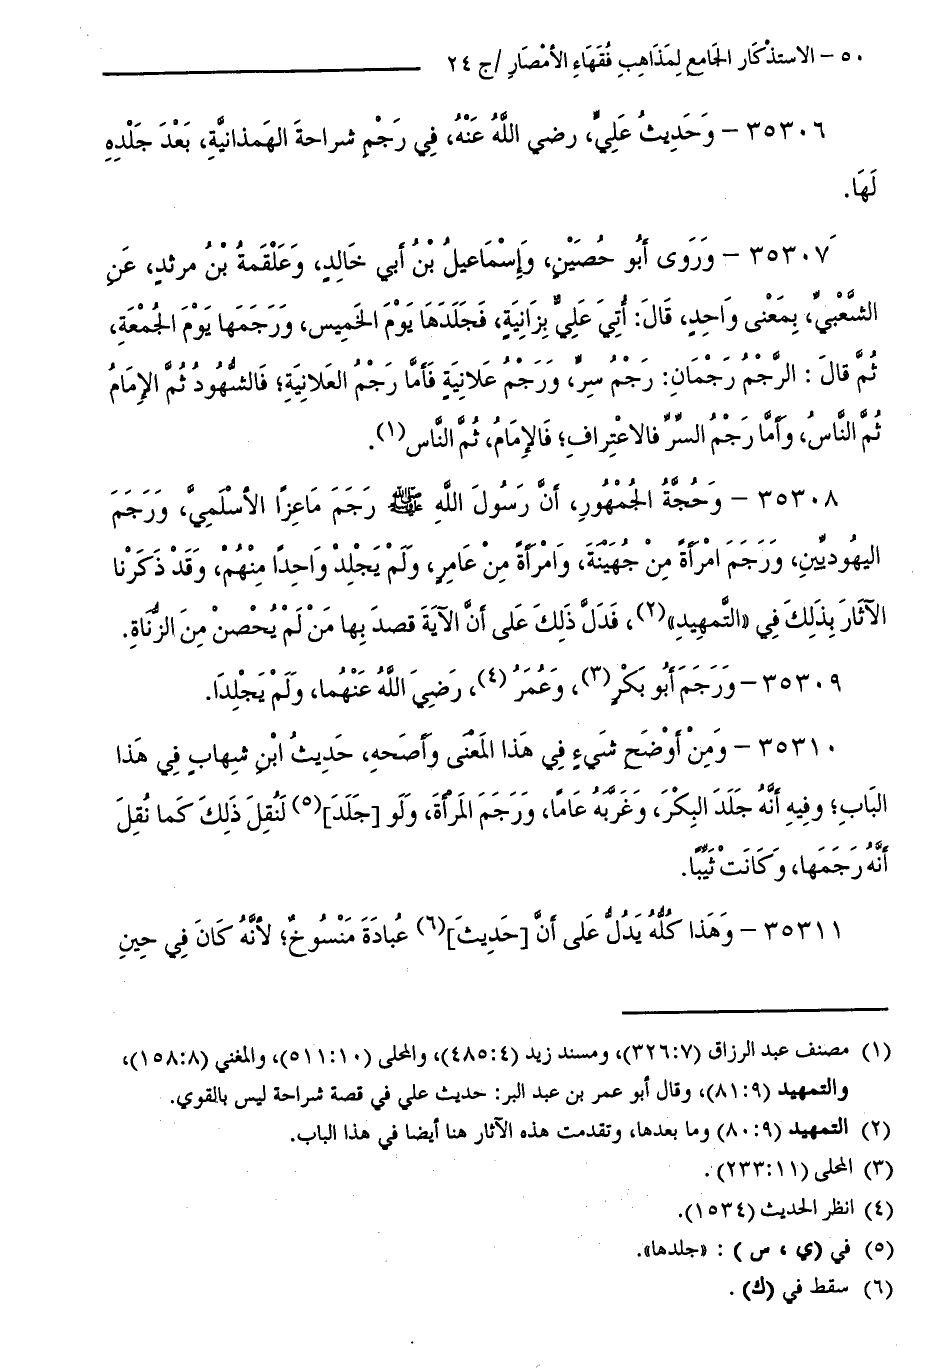 ٥٠ – الاستذْكَار الجَامع لِمَذَاهِبِ فُقَهَاءِ الأمْصَارِ / ج ٢٤
٣٥٣٠٦ – وَحَدِيثُ عَلِيٍّ، رضي اللَّهُ عَنْهُ، فِي رَجْمِ شراحةَ الهَمذانيَّةِ، بَعْدَ جَلْدِهِ
لَهَا.
٣٥٣٠٧ – وَرَوَى أَبُو حُصَيْنٍ، وَإِسْمَاعيلُ بْنُ أبي خَالدٍ، وَعَلْقَمةُ بْنُ مرثدٍ، عَنِ
الشَّعْبيِّ، بِمَعْنى وَاحِدٍ، قَالَ: أُتِيَ عَلِيٌّ بِزَانِيَةٍ، فَجَلَدَهَا يَوْمَ الخَمِيس، ورَجَمَها يَوْمَ الجُمْعَةِ،
ثُمَّ قالَ : الرَّجْمُ رَجْمَانِ: رَجْمُ سِرٍّ، ورَجْمُ عَلانيَةٍ فَأمَّا رَجْمُ العَلانِيَةِ؛ فَالشُّهُودُ ثُمَّ الإِمَامُ
ثُمَّ النَّاسُ، وَأمَّا رَجْمُ السرِّ فالاعْترافِ؛ فَالإِمَامُ، ثُمَّ النَّاس(١).
٣٥٣٠٨ – وَحُجَّةُ الجُمْهُورِ، أنَّ رَسُولَ اللَّهِ ﷺ رَجَمَ مَاعِزًا الأسْلَمِيَّ، وَرَجَمَ
اليهُوديَّينِ، ورَجَمَ امْرَأةً مِنْ جُهَيْنَةَ، وَامْرَأةً مِنْ عَامِرٍ، ولَمْ يَجْلِدْ وَاحِدًا مِنْهُمْ، وَقَدْ ذَكَرْنا
الآثَارَ بِذَلِكَ فِي «التَّمهِيدِ»(٢)، فَدَلَّ ذَلِكَ عَلى أنَّ الآيَةَ قصدَ بِها مَنْ لَمْ يُحْصنْ مِنَ الزُّنَاةِ.
٣٥٣٠٩ – ورَجَمَ أبُو بَكْرٍ(٣)، وَعُمَرُ(٤)، رَضِيَ اللَّهُ عَنْهُما، ولَمْ يَجْلِدَا.
٣٥٣١٠ – وَمِنْ أوْضَحِ شيءٍ فِي هَذا المَعْنى وأصَحهِ، حَدِيثُ ابْنِ شِهابٍ فِي هَذا
البَابِ؛ وفِيهِ أنَّهُ جَلَدَ البِكْرَ، وَغَرَّبَهُ عَامًا، ورَجَمَ المَرْأةَ، وَلَو [جَلَدَ](٥) لَنُقِلَ ذَلِكَ كَما نُقِلَ
أنَّهُ رَجَمَها، وكَانَتْ ثَيِّبًا.
٣٥٣١١ – وَهَذا كُلُّهُ يَدُلُّ عَلى أنَّ [حَدِيثَ](٦) عُبادَةَ مَنْسُوخٌ؛ لأنَّهُ كَانَ فِي حِينِ
(١) مصنف عبد الرزاق (٣٢٦:٧)، ومسند زيد (٤٨٥:٤)، والمحلى (٥١١:١٠)، والمغني (١٥٨:٨)،
والتمهيد (٨١:٩)، وقال أبو عمر بن عبد البر: حديث علي في قصة شراحة ليس بالقوي.
(٢) التمهيد (٨٠:٩) وما بعدها، وتقدمت هذه الآثار هنا أيضا في هذا الباب.
(٣) المحلى (٢٣٣:١١) .
(٤) انظر الحديث (١٥٣٤).
(٥) في (ي ، س ) : «جلدها».
(٦) سقط في (ك) .